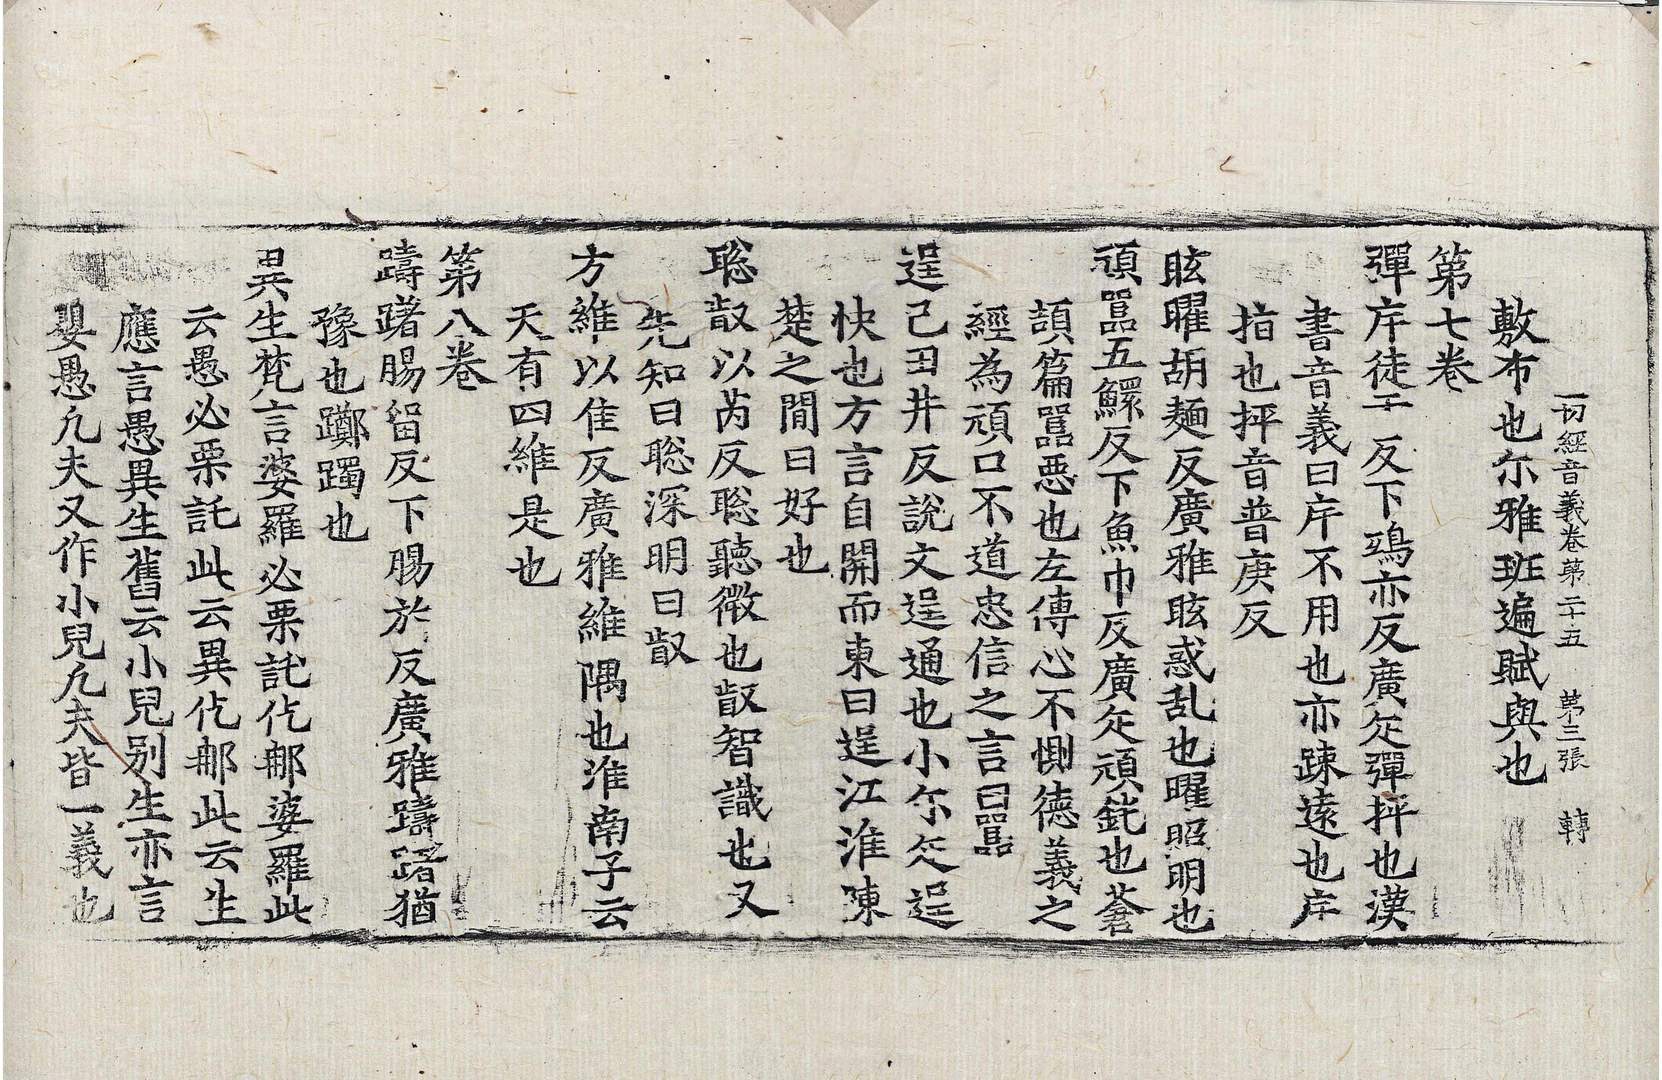 一切經音義卷第二十五 第三張 轉
敷布也尓雅班遍賦與也
第七卷
彈斥徒干反下鵶亦反廣疋彈抨也漢
書音義曰斥不用也亦踈遠也斥
指也抨音普庚反
眩曜胡麵反廣雅眩惑乱也曜照明也
頑嚚五鰥反下魚巾反廣疋頑鈍也蒼
頡篇嚚惡也左傳心不惻德義之
經為頑口不道忠信之言曰嚚
逞己丑井反說文逞通也小尓疋逞
快也方言自關而東曰逞江淮陳
楚之間曰好也
聡叡以芮反聡聽微也叡智識也又
先知曰聡深明曰叡
方維以隹反廣雅維隅也淮南子云
天有四維是也
第八卷
躊躇腸留反下腸於反廣雅躊躇猶
豫也躑躅也
異生梵言婆羅必栗託仡那婆羅此
云愚必栗託此云異仡那此云生
應言愚異生舊云小兒别生亦言
嬰愚凢夫又作小兒凢夫皆一義也